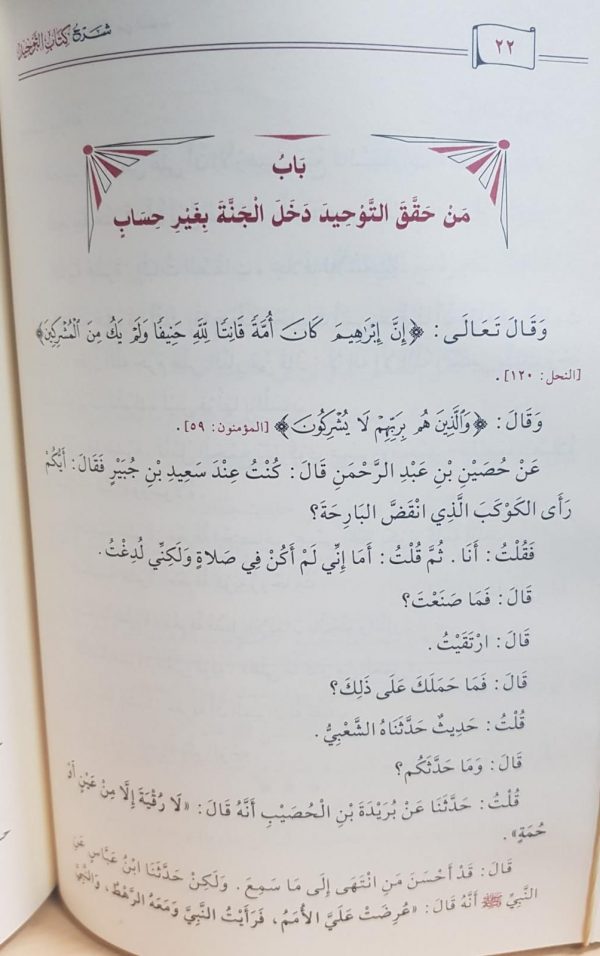 ٢٢
شرح كتاب التوحيد
بَابُ
مَنْ حَقَّقَ التَّوْحِيدَ دَخَلَ الْجَنَّةَ بِغَيْرِ حِسَابٍ
وَقَالَ تَعَالَى: ﴿إِنَّ إِبْرَاهِيمَ كَانَ أُمَّةً قَانِتًا لِلَّهِ حَنِيفًا وَلَمْ يَكُ مِنَ الْمُشْرِكِينَ﴾
[النحل: ١٢٠].
وَقَالَ: ﴿وَالَّذِينَ هُم بِرَبِّهِمْ لَا يُشْرِكُونَ﴾ [المؤمنون: ٥٩].
عَنْ حُصَيْنِ بْنِ عَبْدِ الرَّحْمَنِ قَالَ: كُنْتُ عِنْدَ سَعِيدِ بْنِ جُبَيْرٍ فَقَالَ: أَيُّكُمْ
رَأَى الكَوْكَبَ الَّذِي انْقَضَّ البَارِحَةَ؟
فَقُلْتُ: أَنَا. ثُمَّ قُلْتُ: أَمَا إِنِّي لَمْ أَكُنْ فِي صَلاةٍ وَلَكِنِّي لُدِغْتُ.
قَالَ: فَمَا صَنَعْتَ؟
قَالَ: ارْتَقَيْتُ.
قَالَ: فَمَا حَمَلَكَ عَلَى ذَلِكَ؟
قُلْتُ: حَدِيثٌ حَدَّثَنَاهُ الشَّعْبِيُّ.
قَالَ: وَمَا حَدَّثَكُم؟
قُلْتُ: حَدَّثَنَا عَنْ بُرَيْدَةَ بْنِ الْحُصَيْبِ أَنَّهُ قَالَ: «لَا رُقْيَةَ إِلَّا مِنْ عَيْنٍ أَوْ
حُمَةٍ».
قَالَ: قَدْ أَحْسَنَ مَنِ انْتَهَى إِلَى مَا سَمِعَ. وَلَكِنْ حَدَّثَنَا ابْنُ عَبَّاسٍ عَنِ
النَّبِيِّ ﷺ أَنَّهُ قَالَ: «عُرِضَتْ عَلَيَّ الأُمَمُ، فَرَأَيْتُ النَّبِيَّ وَمَعَهُ الرَّهْطُ، وَالنَّبِيَّ